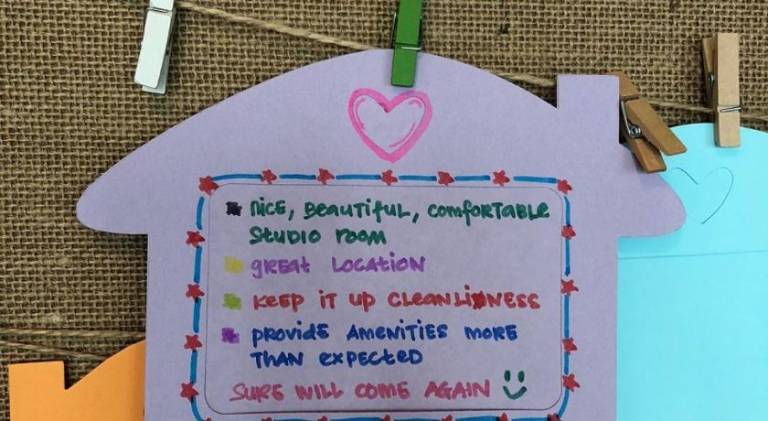 nice, Beautiful, comforTable
Studio room
great Location
Keep it up cleanliness
provide amenities more
than expected
Sure will come again